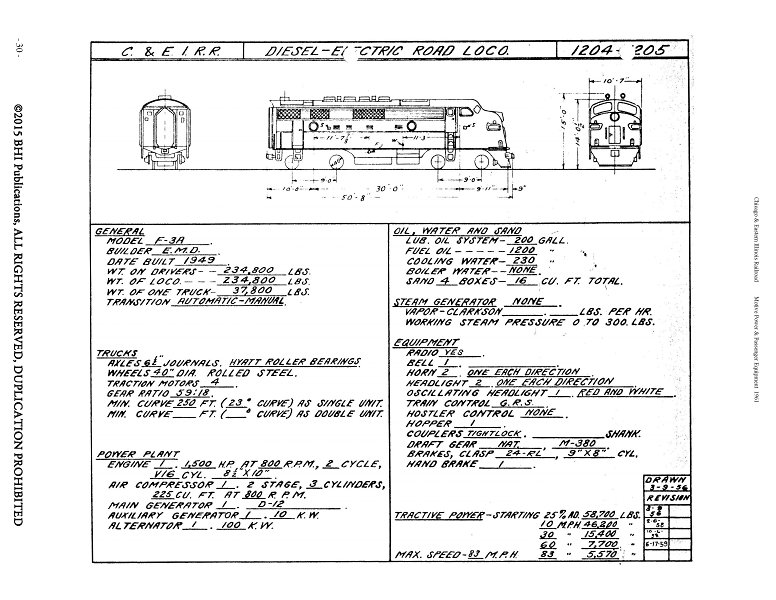 C. & E. I. R.R. DIESEL-ELECTRIC ROAD LOCO. 1204- 205
10'-7"
15'-0"
14'-0½"
11'-7½" 11'-3"
9'-0" 9'-0"
10'-0" 30'-0" 9'-11" 9"
50'-8"
GENERAL
MODEL F-3A.
BUILDER E.M.D.
DATE BUILT 1949
WT. ON DRIVERS-- 234,800 LBS.
WT. OF LOCO.---- 234,800 LBS.
WT. OF ONE TRUCK- 37,800 LBS.
TRANSITION AUTOMATIC-MANUAL.
TRUCKS
AXLES 6½" JOURNALS. HYATT ROLLER BEARINGS
WHEELS 40" DIA. ROLLED STEEL.
TRACTION MOTORS 4
GEAR RATIO 59:18.
MIN. CURVE 250 FT. (23° CURVE) AS SINGLE UNIT.
MIN. CURVE FT. ( ° CURVE) AS DOUBLE UNIT.
POWER PLANT
ENGINE 1. 1,500 H.P. AT 800 R.P.M., 2 CYCLE,
V16 CYL. 8½ X 10".
AIR COMPRESSOR 1. 2 STAGE, 3 CYLINDERS,
225 CU. FT. AT 800 R.P.M.
MAIN GENERATOR 1. D-12
AUXILIARY GENERATOR 1. 10 K.W.
ALTERNATOR 1. 100 K.W.
OIL, WATER AND SAND
LUB. OIL SYSTEM- 200 GALL.
FUEL OIL ----- 1200 "
COOLING WATER- 230 "
BOILER WATER-- NONE. "
SAND 4 BOXES- 16 CU. FT. TOTAL.
STEAM GENERATOR NONE.
VAPOR-CLARKSON . LBS. PER HR.
WORKING STEAM PRESSURE 0 TO 300. LBS.
EQUIPMENT
RADIO YES.
BELL 1.
HORN 2. ONE EACH DIRECTION
HEADLIGHT 2. ONE EACH DIRECTION
OSCILLATING HEADLIGHT 1. RED AND WHITE.
TRAIN CONTROL G.R.S.
HOSTLER CONTROL NONE.
HOPPER 1.
COUPLERS TIGHTLOCK. SHANK.
DRAFT GEAR NAT. M-380
BRAKES, CLASP 24-RL', 9"X8" CYL.
HAND BRAKE 1.
TRACTIVE POWER-STARTING 25% AD. 58,700 LBS.
10 MPH 46,200 "
30 " 15,400 "
60 " 7,700 "
MAX. SPEED-83 M.P.H. 83 " 5,570 "
DRAWN
3-9-56
REVISION
6-17-59
-30-
©2015 BHI Publications, ALL RIGHTS RESERVED, DUPLICATION PROHIBITED
Chicago & Eastern Illinois Railroad Motive Power & Passenger Equipment 1961